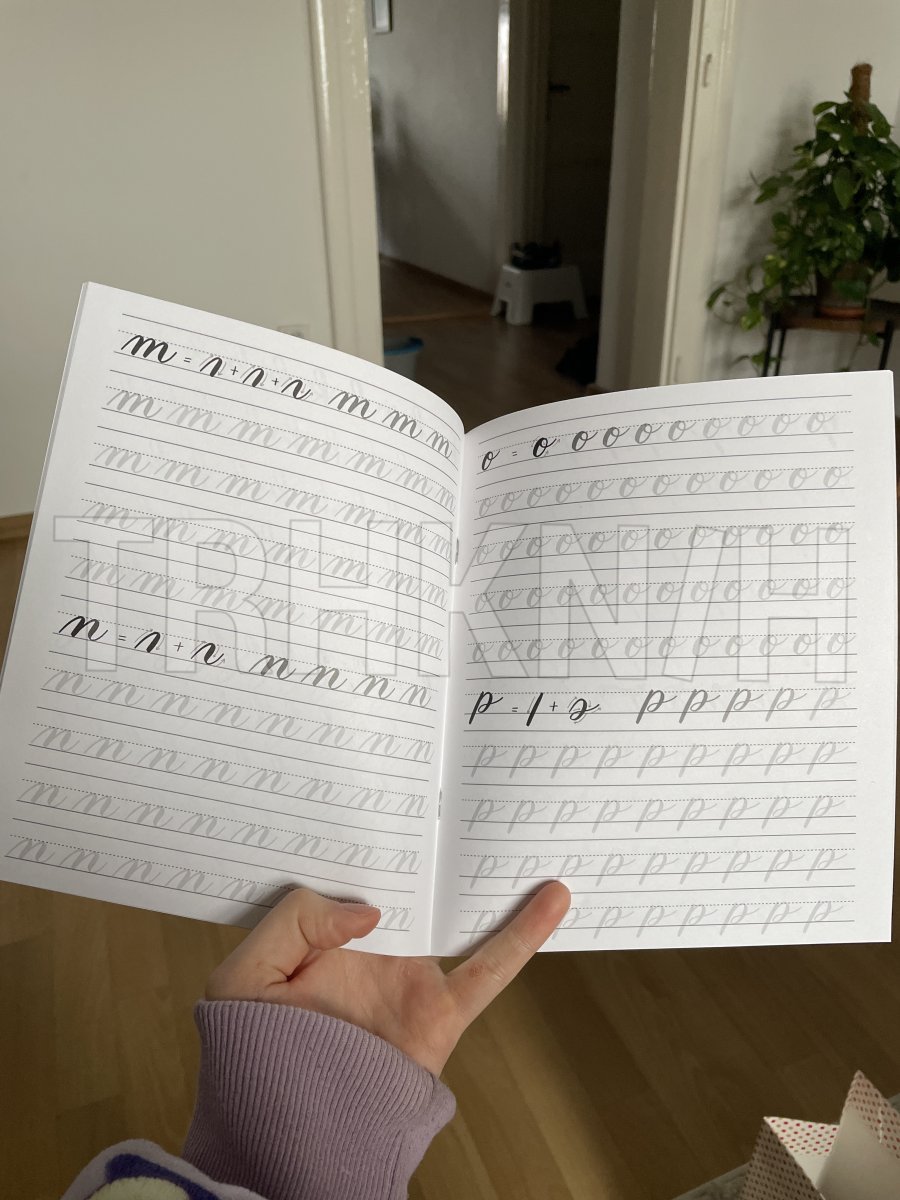 m = ı + ı + ı m m m
m m m m m m m
m m m m m m m
m m m m m m m
m m m m m m m
n = ı + ı n n n n
n n n n n n n n
n n n n n n n n
n n n n n n n n
n n n n n n
o = o o o o o o o o o
o o o o o o o o o o o o
o o o o o o o o o o o o
o o o o o o o o o o o o
o o o o o o o o o o o o
p = l + ə p p p p p
p p p p p p p p p
p p p p p p p p p
p p p p p p p p p
p p p p p p p p
TRHKN/H